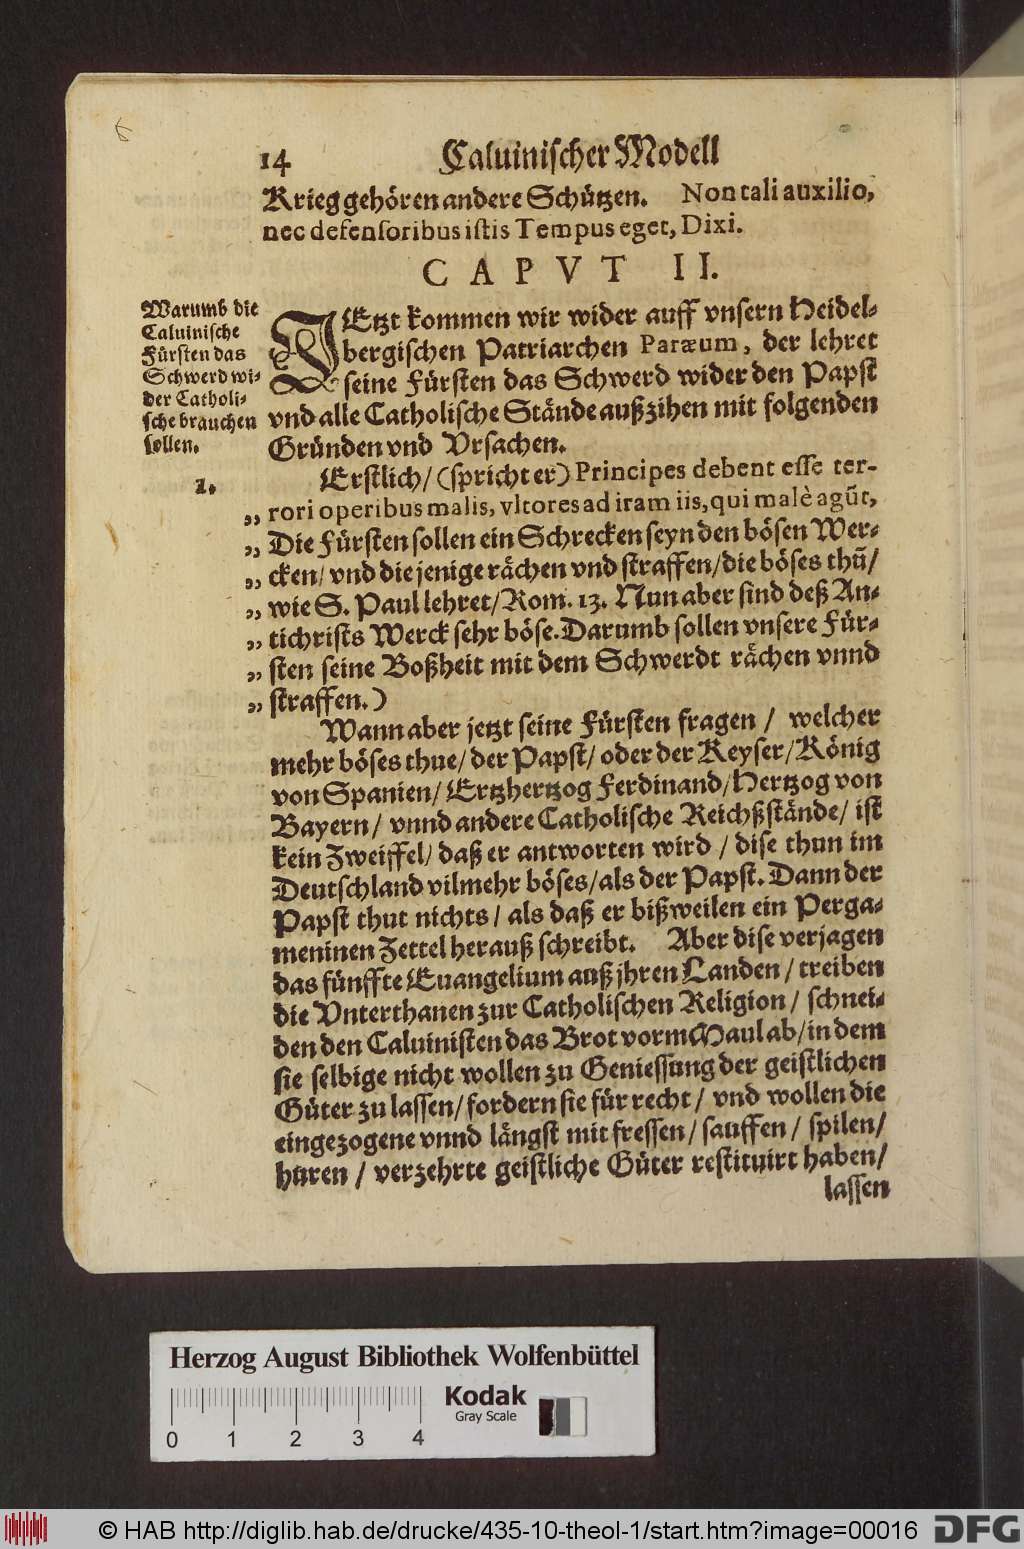 6
14 Caluinischer Modell
Krieg gehören andere Schützen. Non tali auxilio,
nec defensoribus istis Tempus eget, Dixi.
CAPVT II.
Warumb die
Caluinische
Fürsten das
Schwerd wi-
der Catholi-
sche brauchen
sollen.
JEtzt kommen wir wider auff vnsern Heidel-
bergischen Patriarchen Paræum, der lehret
seine Fürsten das Schwerd wider den Papst
vnd alle Catholische Stände außzihen mit folgenden
Gründen vnd Vrsachen.
1.
Erstlich/ (spricht er) Principes debent esse ter-
„ rori operibus malis, vltores ad iram iis, qui malè agūt,
„ Die Fürsten sollen ein Schrecken seyn den bösen Wer-
„ cken/ vnd die jenige rächen vnd straffen/ die böses thū/
„ wie S. Paul lehret/ Rom. 13. Nun aber sind deß An-
„ tichrists Werck sehr böse. Darumb sollen vnsere Für-
„ sten seine Boßheit mit dem Schwerdt rächen vnnd
„ straffen.)
Wann aber jetzt seine Fürsten fragen / welcher
mehr böses thue/ der Papst/ oder der Keyser/ König
von Spanien/ Ertzhertzog Ferdinand/ Hertzog von
Bayern/ vnnd andere Catholische Reichßstände/ ist
kein Zweiffel/ daß er antworten wird / dise thun im
Deutschland vilmehr böses/ als der Papst. Dann der
Papst thut nichts / als daß er bißweilen ein Perga-
meninen Zettel herauß schreibt. Aber dise verjagen
das fünffte Euangelium auß jhren Landen / treiben
die Vnterthanen zur Catholischen Religion / schnei-
den den Caluinisten das Brot vorm Maul ab/ in dem
sie selbige nicht wollen zu Geniessung der geistlichen
Güter zu lassen/ fordern sie für recht / vnd wollen die
eingezogene vnnd längst mit fressen/ sauffen / spilen/
huren / verzehrte geistliche Güter restituirt haben/
lassen
Herzog August Bibliothek Wolfenbüttel
Kodak
Gray Scale
0 1 2 3 4
© HAB http://diglib.hab.de/drucke/435-10-theol-1/start.htm?image=00016
DFG